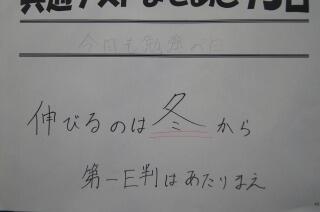 共通テストまであと75日
今日も勉強の日
伸びるのは冬から
第一E判はあたりまえ